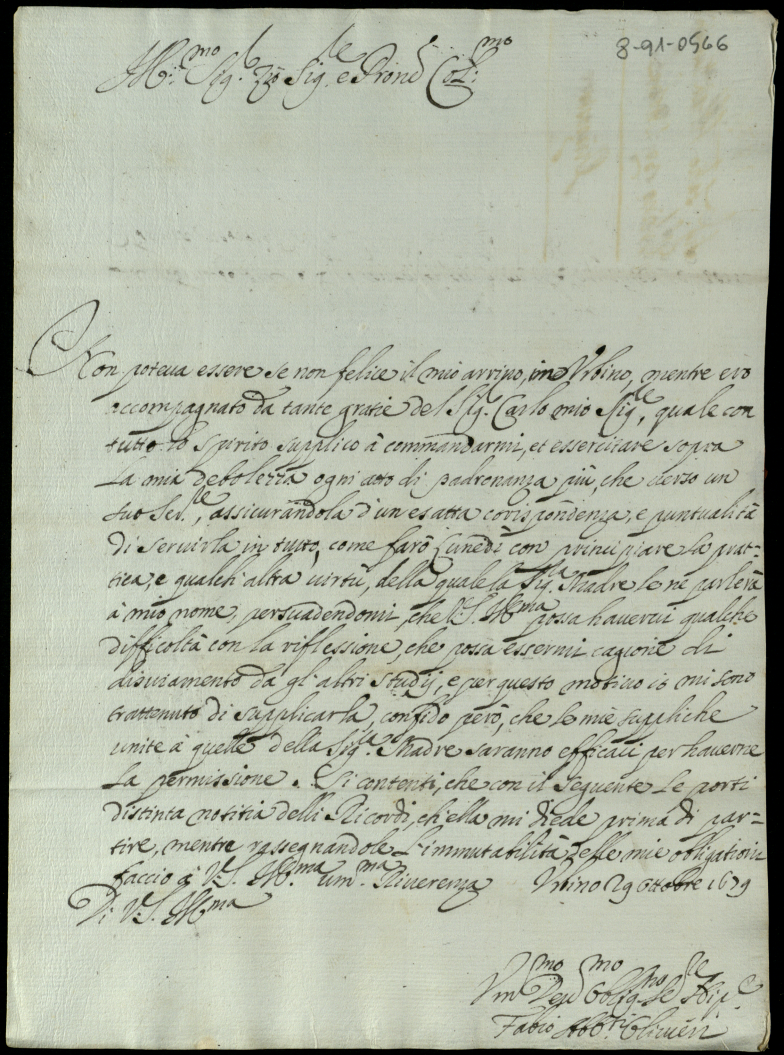 8-91-0566
Ill.mo Sig.r Zio Sig.re e Prone Col.mo
Non poteua essere se non felice il mio arriuo, in Vrbino, mentre ero
accompagnato da tante gratie del Sig.r Carlo mio Sig.re, quale con
tutto lo spirito supplico à commandarmi, et essercitare sopra
la mia debolezza ogni atto di padronanza più, che uerso un
suo Ser.re, assicurandola d'un esatta corispondenza, e puntualità
di seruirla in tutto, come farò Lunedì con principiare la prat=
tica, e qualch'altra uirtù, della quale la Sig.ra Madre le ne parlerà
à mio nome, persuadendomi, che V.S. Ill.ma possa hauerui qualche
difficoltà con la riflessione, che possa essermi cagione di
disuiamento da gl'altri studij, e per questo motiuo io mi sono
trattenuto di supplicarla, confido però, che le mie suppliche
unite à quelle della Sig.ra Madre saranno efficaci per hauerne
la permissione. Si contenti, che con il seguente le porti
distinta notitia delli Ricordi, ch'ella mi diede prima di par=
tire, mentre rassegnandole l'immutabilità delle mie obligationi
faccio à V.S. Ill.ma um.ma Riuerenza Vrbino 29 ottobre 1679
Di V.S. Ill.ma
Vm.mo Deu.mo Oblig.mo Se.re Nip.e
Fabio Abb.ti Oliuieri